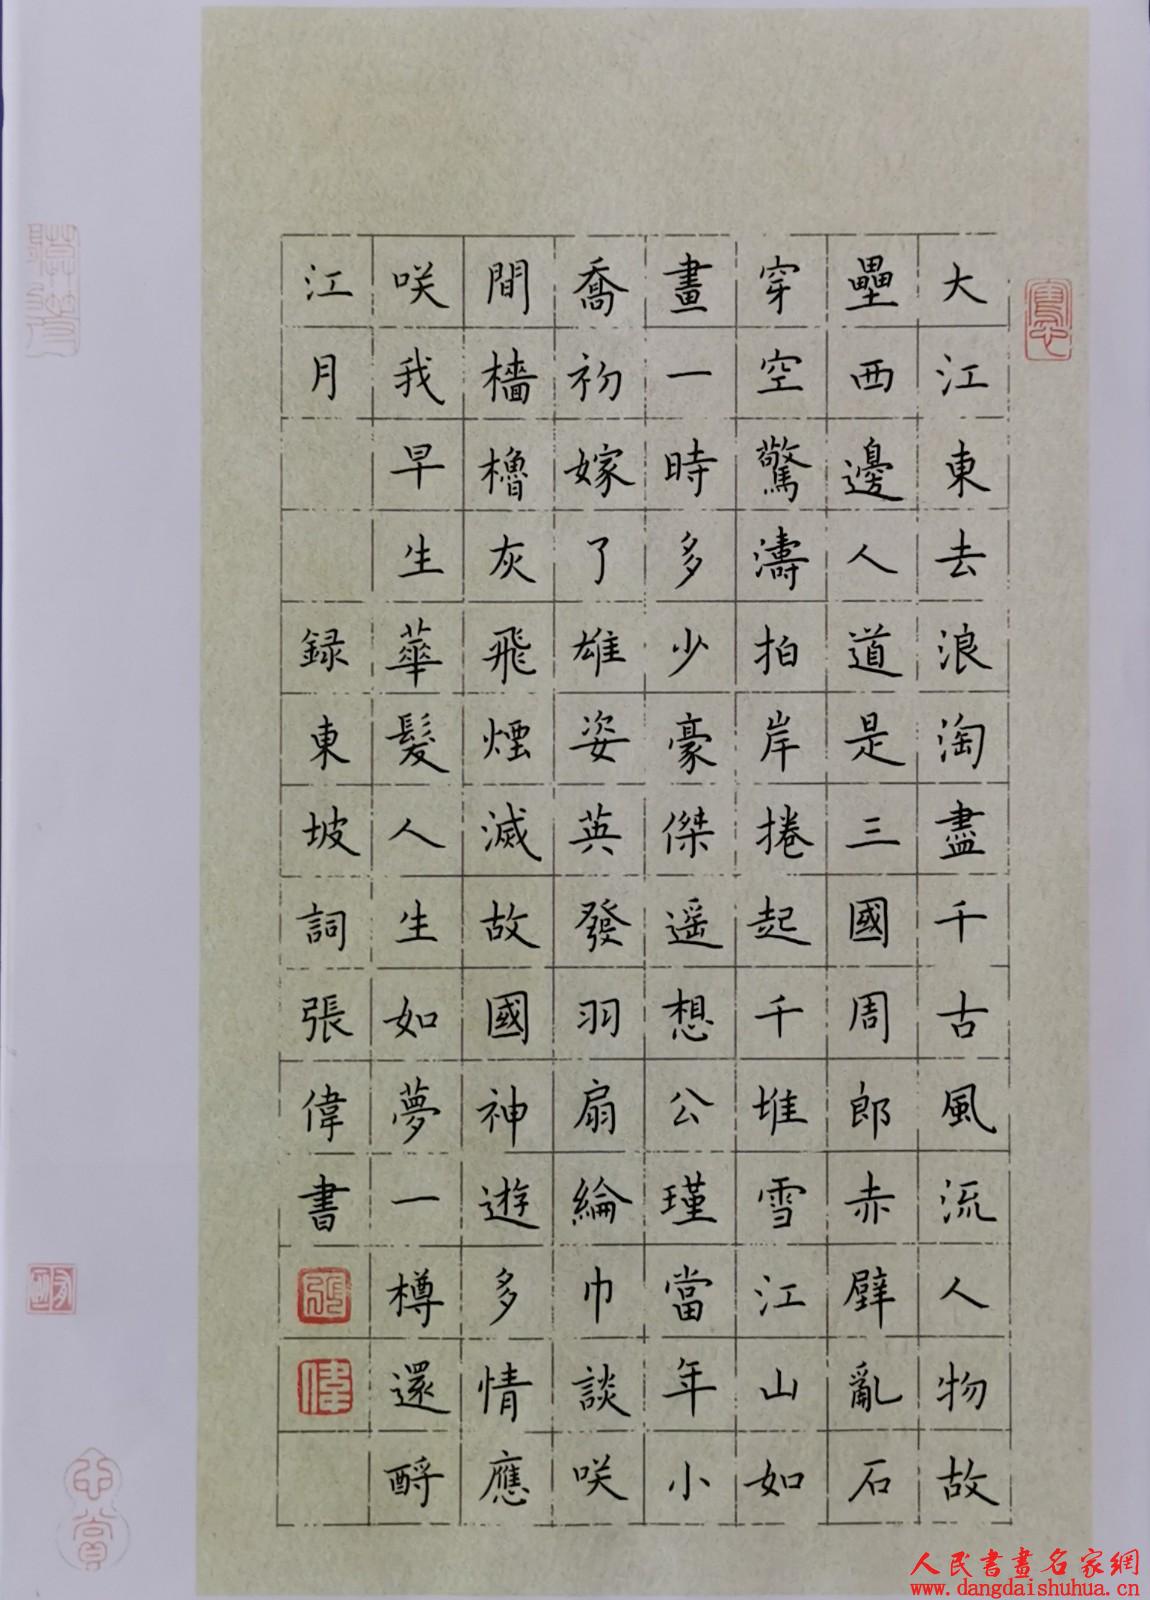 大江東去浪淘盡千古風流人物故
壘西邊人道是三國周郎赤壁亂石
穿空驚濤拍岸捲起千堆雪江山如
畫一時多少豪傑遥想公瑾當年小
喬初嫁了雄姿英發羽扇綸巾談咲
間檣櫓灰飛煙滅故國神遊多情應
咲我早生華髮人生如夢一樽還酹
江月 録東坡詞張偉書
張
偉
人民書畫名家網
www.dangdaishuhua.cn